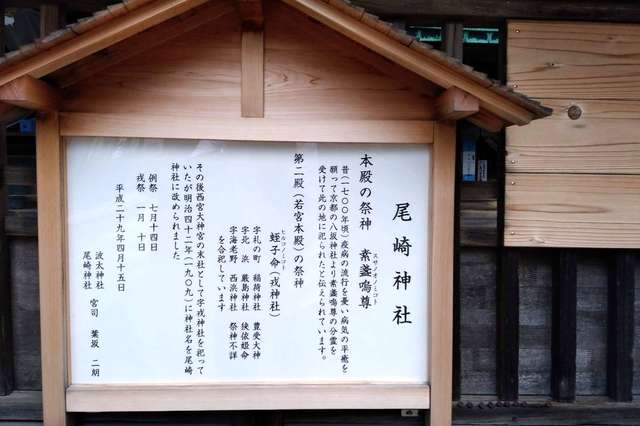 尾崎神社
本殿の祭神　素盞嗚尊
スサノオノミコト
昔(一七〇〇年頃)疫病の流行を憂い病気の平癒を
願って京都の八坂神社より素盞嗚尊の分霊を
受けて此の地に祀られたと伝えられています。
第二殿(若宮本殿)の祭神
ヒルコノミコト
蛭子命(戎神社)
字札の町　稲荷神社　豊受大神
字北　浜　厳島神社　狭依姫命
字海老野　西浜神社　祭神不詳
を合祀しています
その後西宮大神宮の末社として字戎神社を祀って
いたが明治四十二年(一九〇九)に神社名を尾崎
神社に改められました
例祭　七月十四日
戎祭　一月　十日
平成二十九年四月十五日
波太神社　宮司　葉坂　二朗
尾崎神社